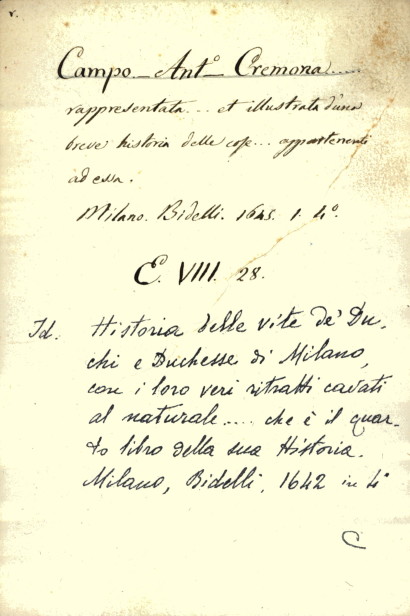 v.
Campo - Ant.o Cremona.....
rappresentata... et illustrata d'una
breve historia delle cose... appartenenti
ad essa.
Milano. Bidelli. 1645. 1. 4.o
E. VIII. 28.
Id. Historia delle vite de' Du-
chi e Duchesse di Milano,
con i loro veri ritratti cavati
al naturale..... che è il quar-
to libro della sua Historia.
Milano, Bidelli, 1642 in 4.o
C